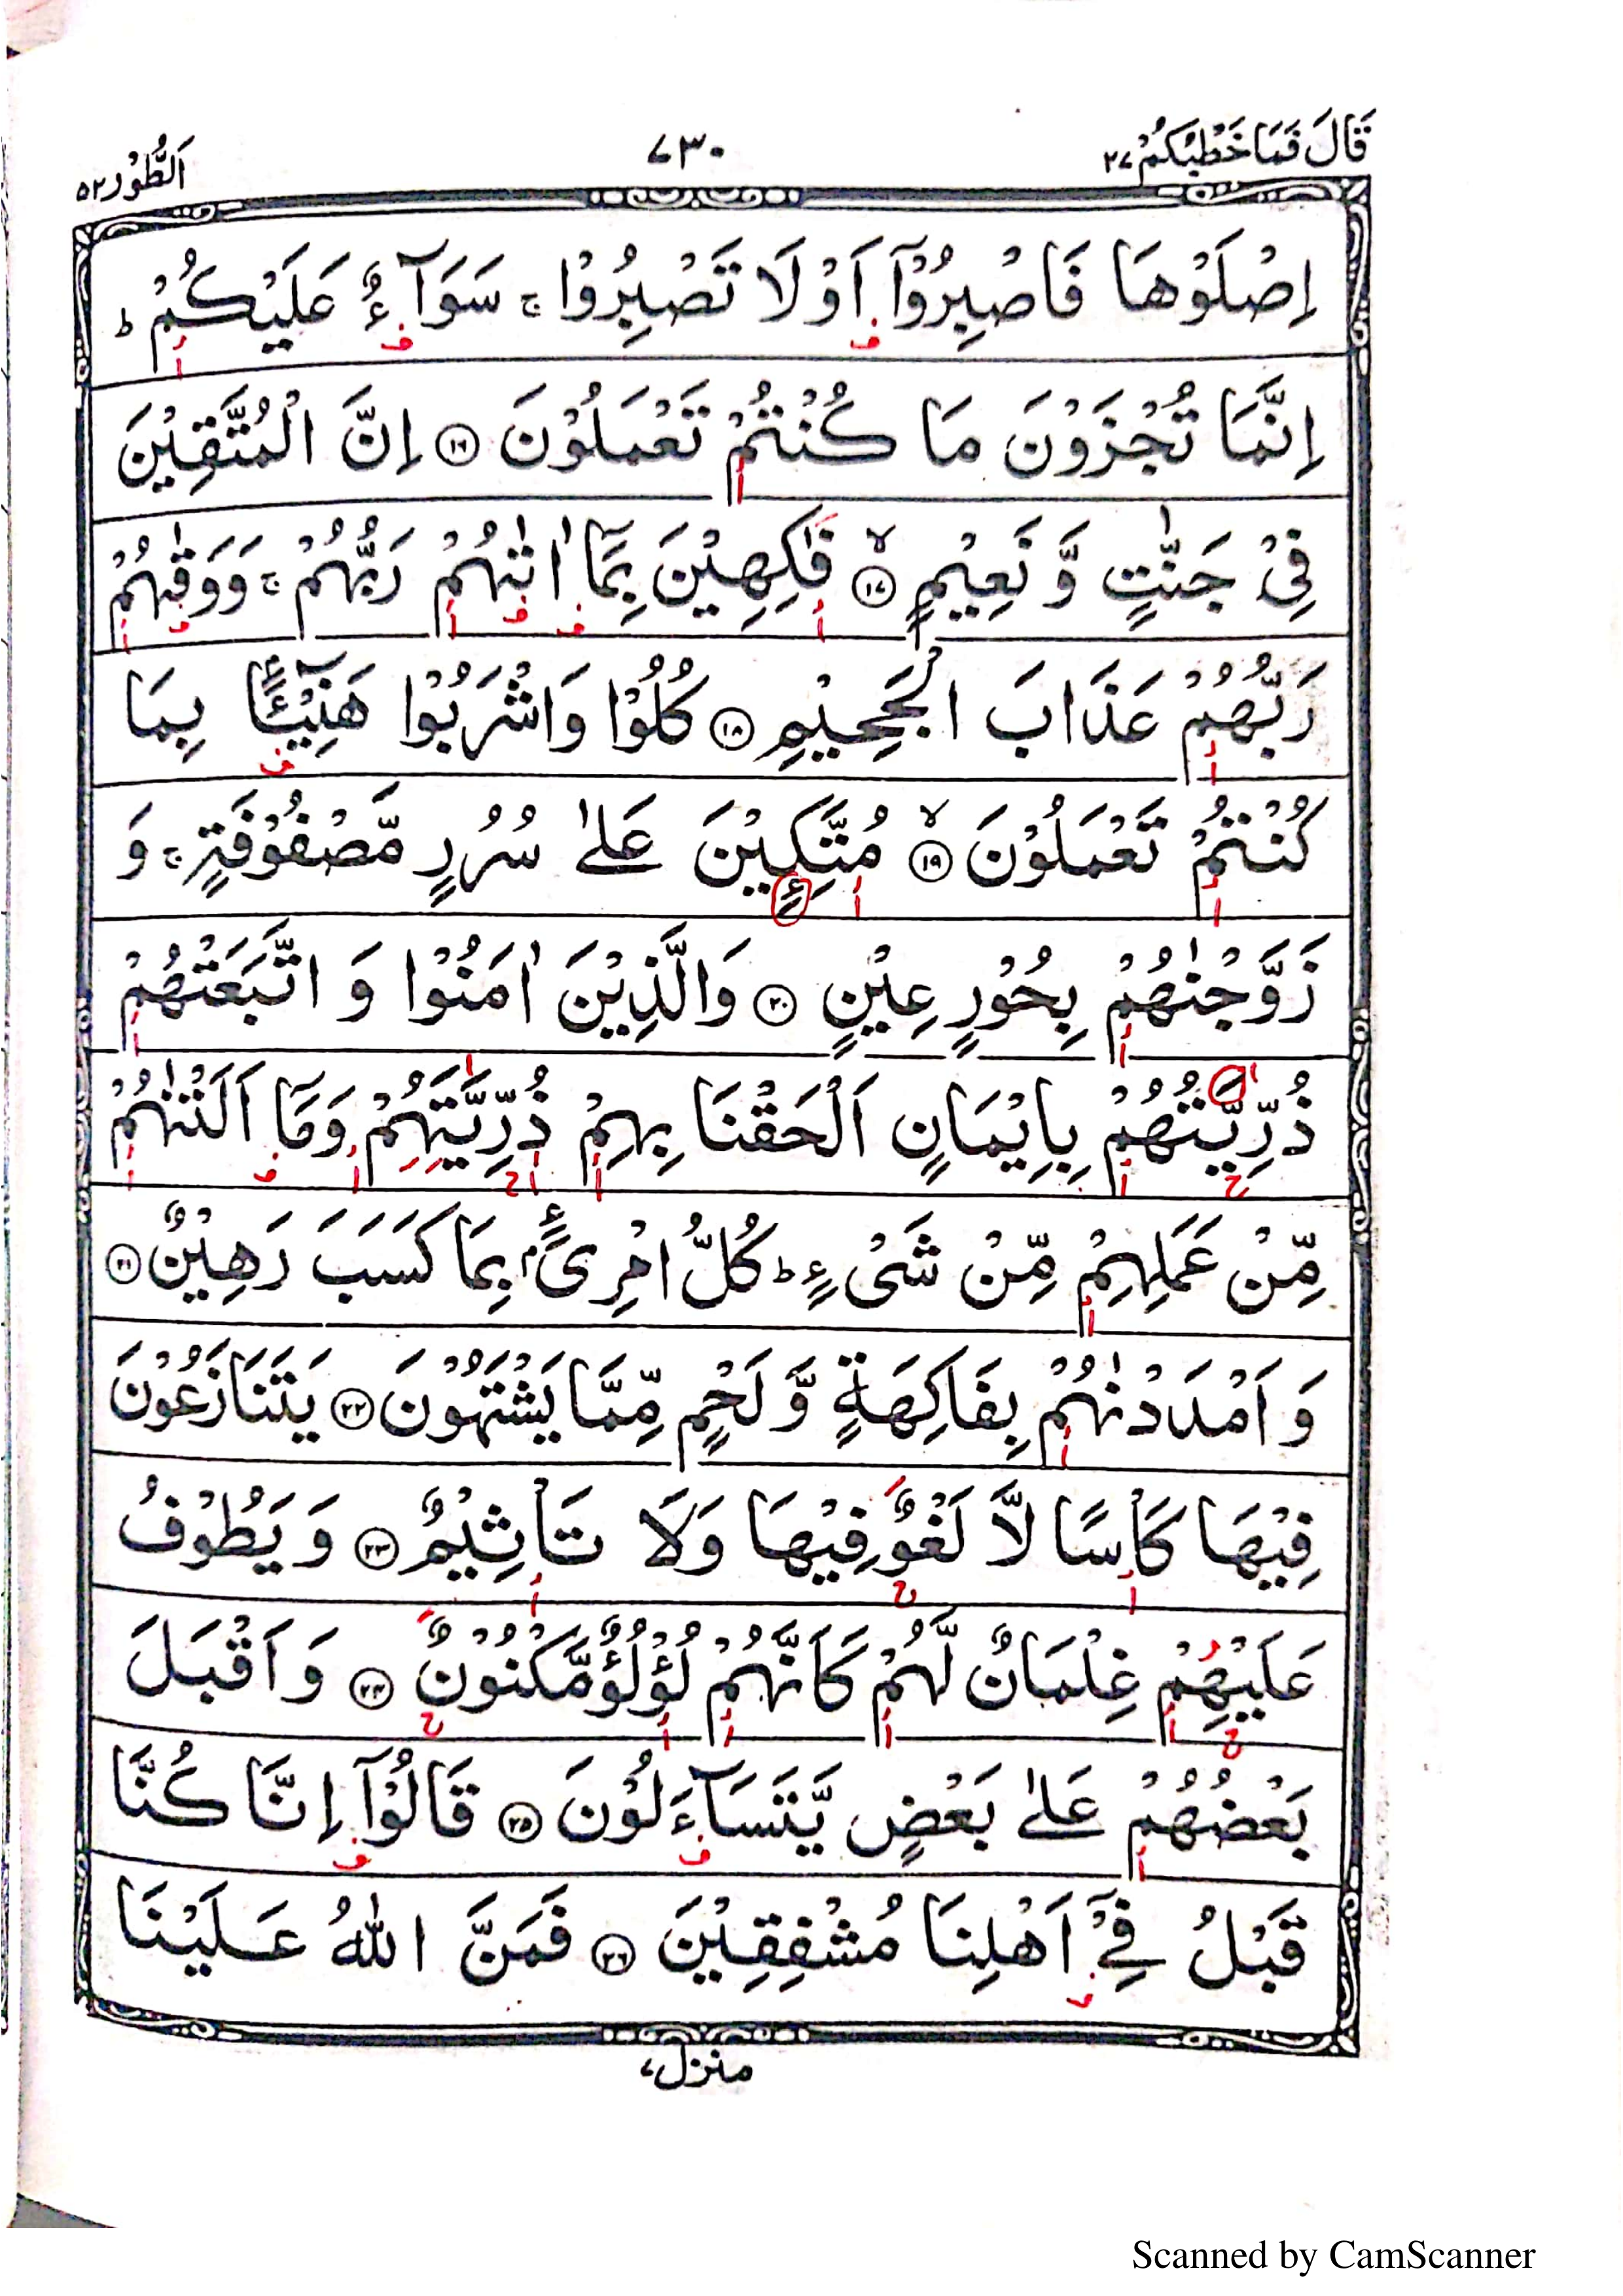 قَالَ فَمَا خَطْبُكُمْ ٢٧ ٧٣٠ اَلطُّوْر ٥٢
اِصْلَوْهَا فَاصْبِرُوْٓا اَوْ لَا تَصْبِرُوْا ۚ سَوَآءٌ عَلَيْكُمْ ؕ
اِنَّمَا تُجْزَوْنَ مَا كُنْتُمْ تَعْمَلُوْنَ ١٦ اِنَّ الْمُتَّقِيْنَ
فِيْ جَنّٰتٍ وَّ نَعِيْمٍ ۙ ١٧ فٰكِهِيْنَ بِمَآ اٰتٰىهُمْ رَبُّهُمْ ۚ وَ وَقٰىهُمْ
رَبُّهُمْ عَذَابَ الْجَحِيْمِ ١٨ كُلُوْا وَاشْرَبُوْا هَنِيْٓـًٔۢا بِمَا
كُنْتُمْ تَعْمَلُوْنَ ۙ ١٩ مُتَّكِـِٕيْنَ عَلٰى سُرُرٍ مَّصْفُوْفَةٍ ۚ وَ
زَوَّجْنٰهُمْ بِحُوْرٍ عِيْنٍ ٢٠ وَالَّذِيْنَ اٰمَنُوْا وَ اتَّبَعَتْهُمْ
ذُرِّيَّتُهُمْ بِاِيْمَانٍ اَلْحَقْنَا بِهِمْ ذُرِّيَّتَهُمْ وَمَآ اَلَتْنٰهُمْ
مِّنْ عَمَلِهِمْ مِّنْ شَيْءٍ ؕ كُلُّ امْرِئٍۢ بِمَا كَسَبَ رَهِيْنٌ ٢١
وَ اَمْدَدْنٰهُمْ بِفَاكِهَةٍ وَّ لَحْمٍ مِّمَّا يَشْتَهُوْنَ ٢٢ يَتَنَازَعُوْنَ
فِيْهَا كَاْسًا لَّا لَغْوٌ فِيْهَا وَلَا تَاْثِيْمٌ ٢٣ وَ يَطُوْفُ
عَلَيْهِمْ غِلْمَانٌ لَّهُمْ كَاَنَّهُمْ لُؤْلُؤٌ مَّكْنُوْنٌ ٢٤ وَ اَقْبَلَ
بَعْضُهُمْ عَلٰى بَعْضٍ يَّتَسَآءَلُوْنَ ٢٥ قَالُوْٓا اِنَّا كُنَّا
قَبْلُ فِيْٓ اَهْلِنَا مُشْفِقِيْنَ ٢٦ فَمَنَّ اللّٰهُ عَلَيْنَا
منزل ٧
Scanned by CamScanner